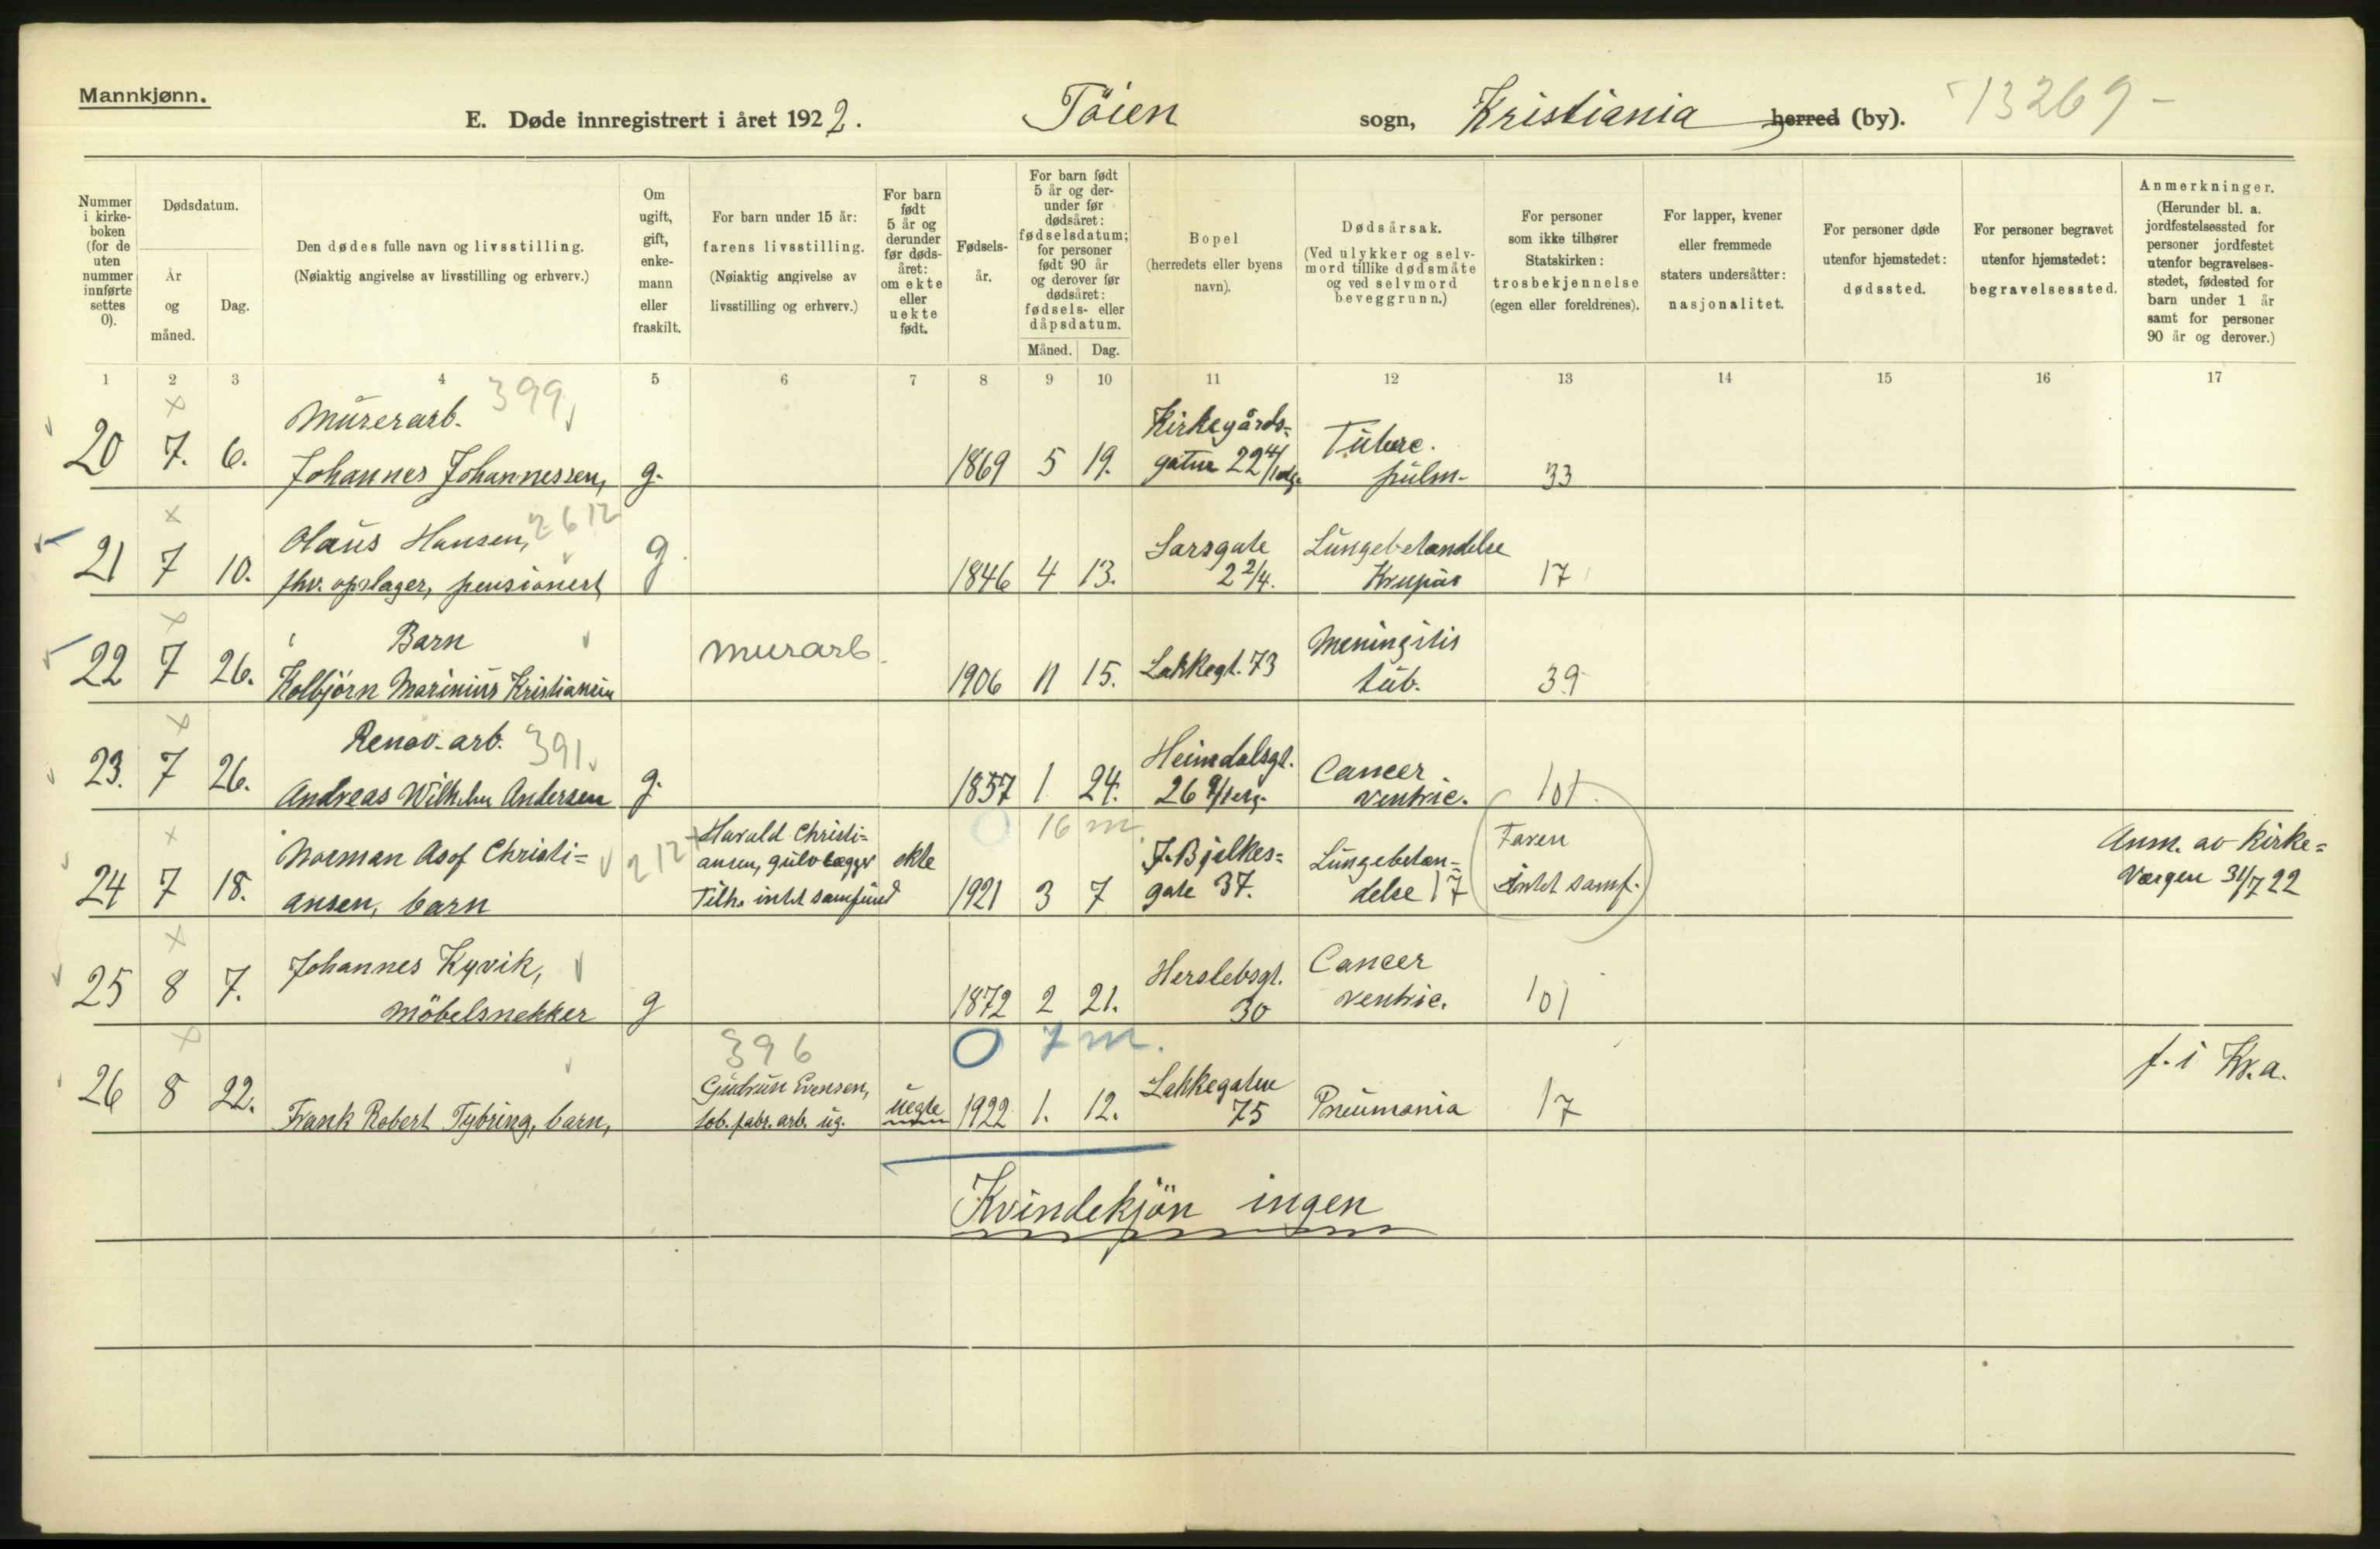 Mannkjønn.
E. Døde innregistrert i året 1922. Töien sogn, Kristiania herred (by). 13269 -
Nummer i kirke-boken (for de uten nummer innførte settes 0).
Dødsdatum.
År og måned.
Dag.
Den dødes fulle navn og livsstilling.
(Nøiaktig angivelse av livsstilling og erhverv.)
Om ugift, gift, enke-mann eller fraskilt.
For barn under 15 år:
farens livsstilling.
(Nøiaktig angivelse av
livsstilling og erhverv.)
For barn født 5 år og derunder før døds-året: om ekte eller uekte født.
Fødsels-år.
For barn født 5 år og der-under før dødsåret: fødselsdatum; for personer født 90 år og derover før dødsåret: fødsels- eller dåpsdatum.
Måned. Dag.
Bopel
(herredets eller byens navn).
Dødsårsak.
(Ved ulykker og selv-mord tillike dødsmåte og ved selvmord beveggrunn.)
For personer som ikke tilhører Statskirken: trosbekjennelse (egen eller foreldrenes).
For lapper, kvener eller fremmede staters undersåtter: nasjonalitet.
For personer døde utenfor hjemstedet: dødssted.
For personer begravet utenfor hjemstedet: begravelsessted.
Anmerkninger.
(Herunder bl. a. jordfestelsessted for personer jordfestet utenfor begravelses-stedet, fødested for barn under 1 år samt for personer 90 år og derover.)
1 2 3 4 5 6 7 8 9 10 11 12 13 14 15 16 17
399
Murerarb. Kirkegårds=
20 7. 6. Johannes Johannessen, g. 1869 5 19. gaten 22 Tuberc. pulm. 33
2612
Olaus Hansen, Sarsgate Lungebetændelse
21 7 10. fhv. opslager, pensionert g. 1846 4 13. 2 2/4. Krupøs 17
Barn murarb. Meningitis
22 7 26. Kolbjørn Marinius Kristiansen 1906 11 15. Lakkegt. 73 tub. 39
Renov. arb. 391 Heimdalsgt. Cancer
23. 7 26. Andreas Wilhelm Andersen g. 1857 1 24. 26 ventric. 101.
16 m
Norman Asof Christi= 212 Harald Christi=
ansen, gulvlægger ekte J. Bjelkes= Lungebetæn= Faren Anm. av kirke=
24 7 18. ansen, barn Tilh. intet samfund 1921 3 7 gate 37. delse 17 intet samf. Værgen 31/7 22
Johannes Kyvik, Herslebsgt. Cancer
25 8 7. Möbelsnekker g 1872 2 21. 30 ventric. 101
396 0 7 m.
Gudrun Evensen, Lakkegaten f. i Kr.a.
26 8 22. Frank Robert Tybring, barn, tob. fabr. arb. ug. uegte 1922 1. 12. 75 Pneumonia 17
Kvindekjön ingen